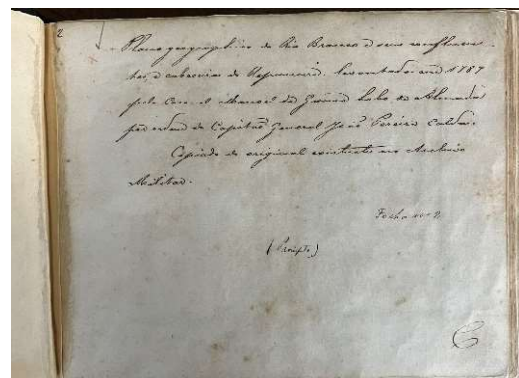 2
Plano geographico do Rio Branco e seus confluen-
tes, e cabeceiras do Rupumuní. levantado em 1787
pelo Coro.el Manoel da Gama Lobo de Almada
por ordem do Capitaõ General Joaõ Pereira Caldas.
Copiado do original existente no Archivo
Militar.
Folha nº 2